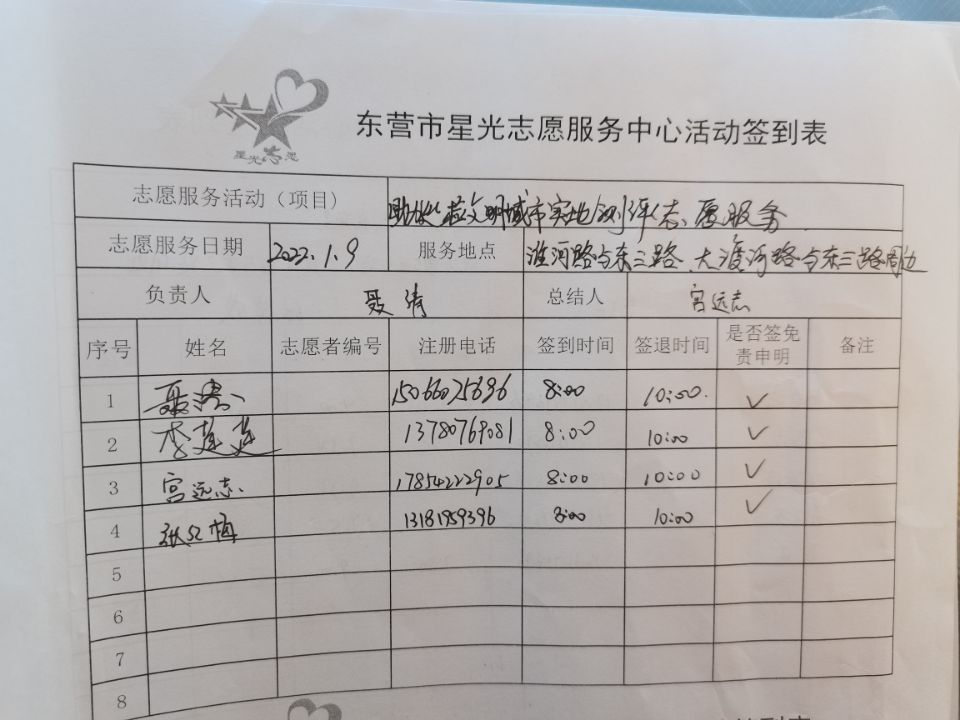 星光志愿
东营市星光志愿服务中心活动签到表
志愿服务活动（项目） 文明城市实地测评志愿服务
志愿服务日期 2022.1.9 服务地点 淮河路与东三路、大渡河路与东三路周边
负责人 聂涛 总结人 宫远志
序号 姓名 志愿者编号 注册电话 签到时间 签退时间 是否签免责申明 备注
1 聂涛 15066075696 8:00 10:00. ✓
2 李莲莲 13780769081 8:00 10:00 ✓
3 宫远志 17854222905 8:00 10:00 ✓
4 13181959396 8:00 10:00 ✓
5
6
7
8